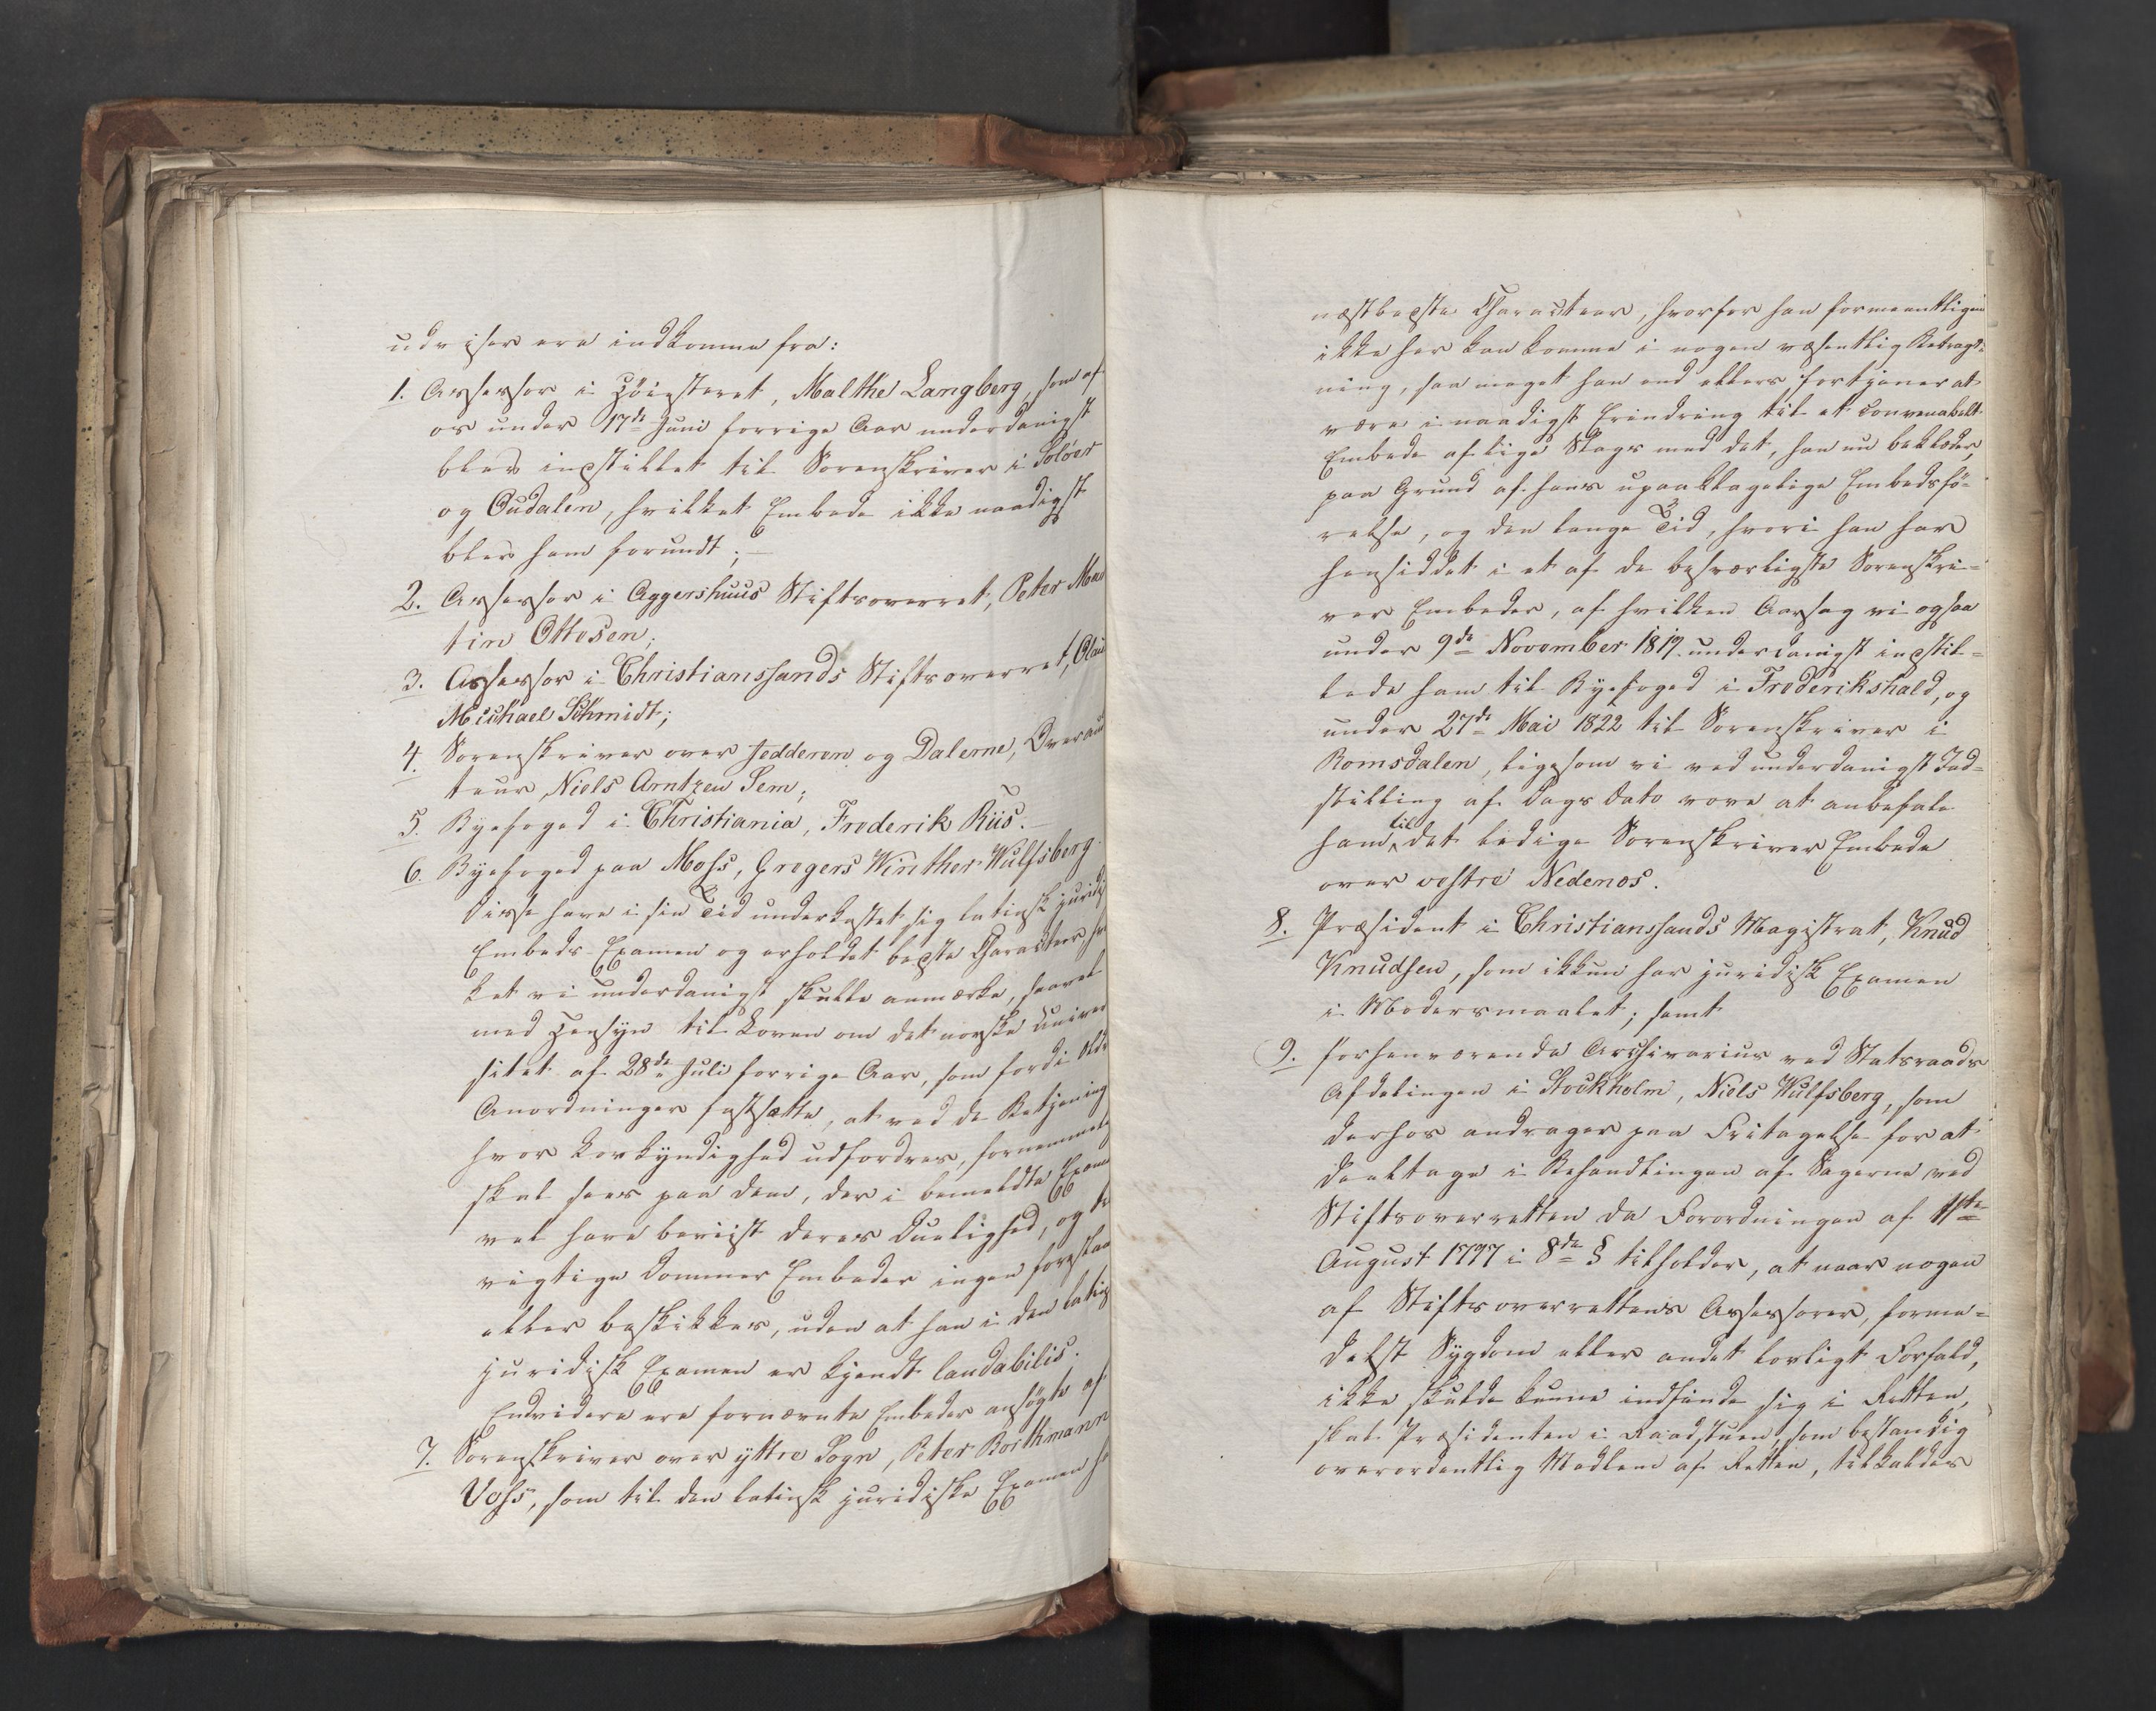 udviser ere indkomne fra:
1. Assessor i Höiesteret, Malthe Langberg, som af
os under 17de Juni forrige Aar underdanigst
blev indstillet til Sorenskriver i Solöer
og Oudalen, hvilket Embede ikke naadigst
blev ham forundt; —
2. Assessor i Aggershuus Stiftsoverret, Peter Mar
tin Ottesen;
3. Assessor i Christianssands Stiftsoverret, Claus
Michael Schmidt;
4. Sorenskriver over Jedderen og Dalerne, Overaudi
teur, Niels Arntzen Sem;
5. Byefoged i Christiania, Frederik Riis. —
6. Byefoged paa Moss, Gregers Winther Wulfsberg.
Disse have i sin Tid underkastet sig latinsk juridisk
Embeds Examen og erholdet bedste Characteer, hvil
ket vi underdanigst skulle anmærke, saavel
med Hensyn til Loven om det norske Univer
sitet af 28de Juli forrige Aar, som fordi ældre
Anordninger fastsætte, at ved de Betjening
hvor Lovkyndighed udfordres, fornemmelig
skal sees paa dem, der i bemeldte Examen
vel have beviist deres Duelighed, og til
vigtige Dommer Embeder ingen foreslaaes
eller beskikkes, uden at han i den latinsk
juridisk Examen er kjendt laudabilis.
Endvidere ere fornævnte Embeder ansögte af
7. Sorenskriver over yttre Sogn, Peter Borthmann
Voss, som til den latinsk juridiske Examen har
næstbedste Characteer, hvorfor han formeentligen
ikke her kan komme i nogen væsentlig Betragt=
ning, saa meget han end ellers fortjener at
være i naadigst Erindring til et convenabelt
Embede af lige Slags med det, han nu beklæder,
paa Grund af hans upaaklagelige Embedsfö=
relse, og den lange Tid, hvori han har
hensiddet i et af de besværligste Sorenskri=
ver Embeder, af hvilken Aarsag vi ogsaa
under 9de November 1819 underdanigst indstil=
lede ham til Byefoged i Frederikshald, og
under 27de Mai 1822 til Sorenskriver i
Romsdalen, ligesom vi ved underdanigst Ind=
stilling af Dags Dato vove at anbefale
ham til det ledige Sorenskriver Embede
over vestre Nedenæs.
8. Præsident i Christianssands Magistrat, Knud
Knudsen, som ikkun har juridisk Examen
i Modersmaalet; samt
9. forhenværende Archivarius ved Statsraads
Afdelingen i Stockholm, Niels Wulfsberg, som
derhos andrager paa Fritagelse for at
deeltage i Behandlingen af Sagerne ved
Stiftsoverretten da Forordningen af 11te
August 1797 i 8de § tilholder, at naar nogen
af Stiftsoverrettens Assessorer, forme=
delst Sygdom eller andet lovligt Forfald,
ikke skulde kunne indfinde sig i Retten,
skal Præsidenten i Raadstuen, som bestandig
overordentlig Medlem af Retten, tilkaldes